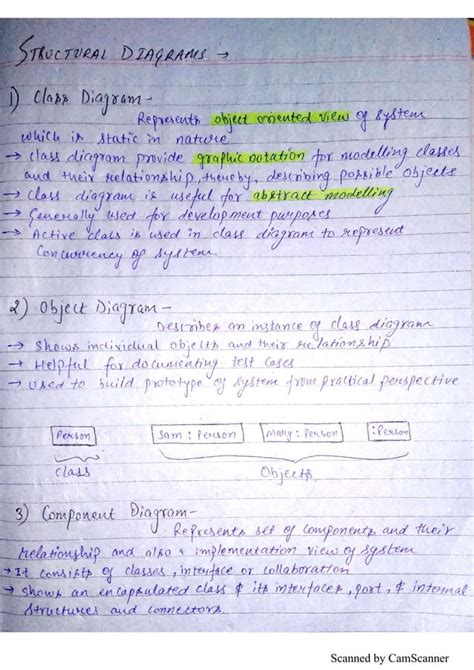 STRUCTURAL DIAGRAMS →
1) Class Diagram -
Represents object oriented view of system
which is static in nature
→ Class diagram provide graphic notation for modelling classes
and their relationship, thereby, describing possible objects
→ Class diagram is useful for abstract modelling
→ Generally used for development purposes
→ Active class is used in class diagram to represent
Concurrency of system
2) Object Diagram -
Describes an instance of class diagram
→ Shows individual objects and their relationship
→ Helpful for documenting test cases
→ Used to build prototype of system from practical perspective
Person Sam : Person Mary : Person : Person
Class Objects
3) Component Diagram -
Represents set of components and their
relationship and also implementation view of system
→ It consists of classes, interface or collaboration
→ Shows an encapsulated class & its interfaces, port, & internal
structures and connectors
Scanned by CamScanner